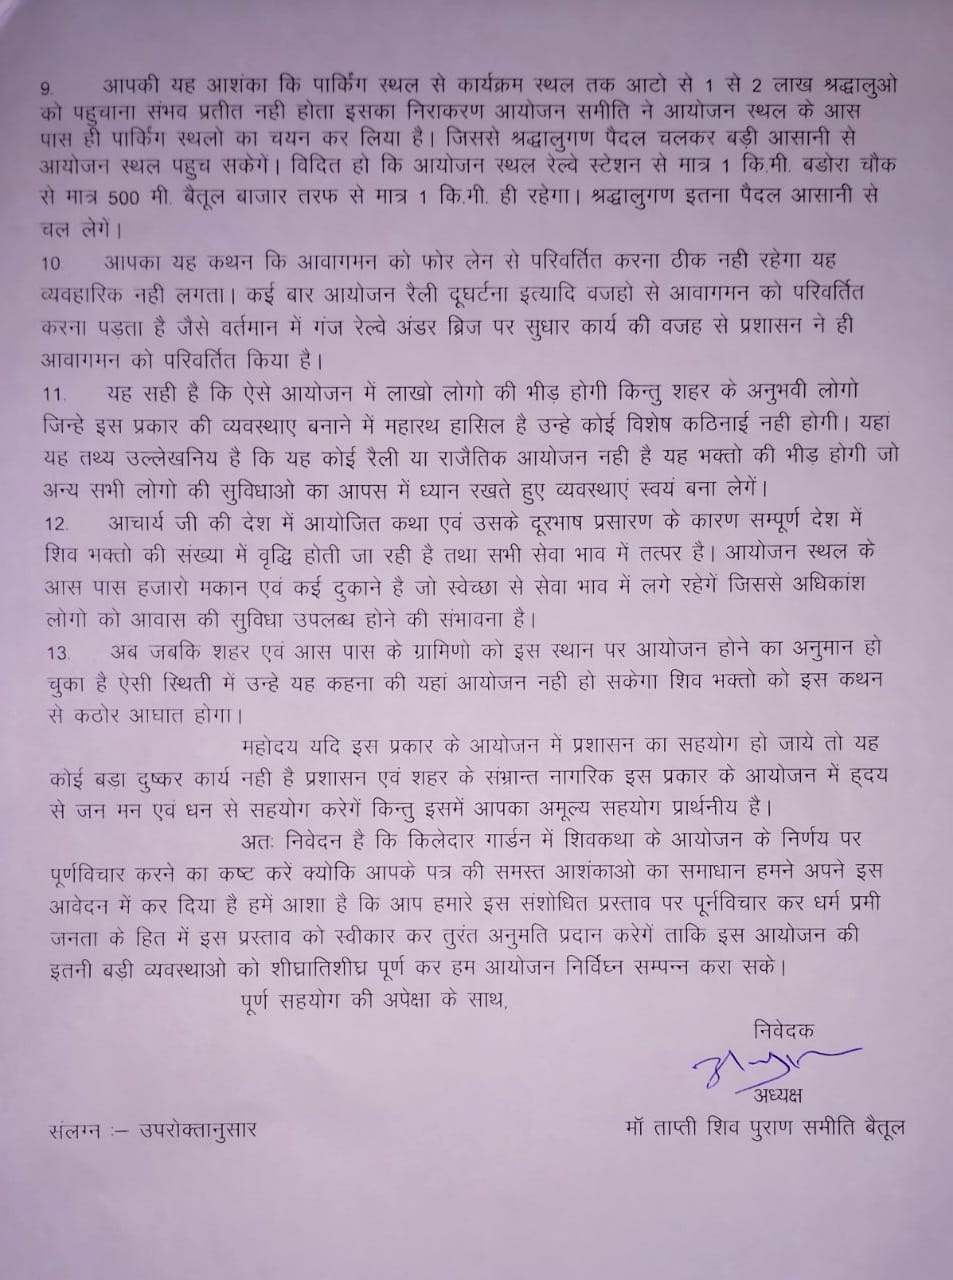 9. आपकी यह आशंका कि पार्किंग स्थल से कार्यक्रम स्थल तक आटो से 1 से 2 लाख श्रद्धालुओ
को पहुचाना संभव प्रतीत नही होता इसका निराकरण आयोजन समीति ने आयोजन स्थल के आस
पास ही पार्किंग स्थलो का चयन कर लिया है। जिससे श्रद्धालुगण पैदल चलकर बड़ी आसानी से
आयोजन स्थल पहुच सकेगें। विदित हो कि आयोजन स्थल रेल्वे स्टेशन से मात्र 1 कि.मी. बडोरा चौक
से मात्र 500 मी. बैतूल बाजार तरफ से मात्र 1 कि.मी. ही रहेगा। श्रद्धालुगण इतना पैदल आसानी से
चल लेगें।
10. आपका यह कथन कि आवागमन को फोर लेन से परिवर्तित करना ठीक नही रहेगा यह
व्यवहारिक नही लगता। कई बार आयोजन रैली दूघर्टना इत्यादि वजहो से आवागमन को परिवर्तित
करना पड़ता है जैसे वर्तमान में गंज रेल्वे अंडर ब्रिज पर सुधार कार्य की वजह से प्रशासन ने ही
आवागमन को परिवर्तित किया है।
11. यह सही है कि ऐसे आयोजन में लाखो लोगो की भीड़ होगी किन्तु शहर के अनुभवी लोगो
जिन्हे इस प्रकार की व्यवस्थाए बनाने में महारथ हासिल है उन्हे कोई विशेष कठिनाई नही होगी। यहां
यह तथ्य उल्लेखनिय है कि यह कोई रैली या राजैतिक आयोजन नही है यह भक्तो की भीड़ होगी जो
अन्य सभी लोगो की सुविधाओ का आपस में ध्यान रखते हुए व्यवस्थाएं स्वयं बना लेगें।
12. आचार्य जी की देश में आयोजित कथा एवं उसके दूरभाष प्रसारण के कारण सम्पूर्ण देश में
शिव भक्तो की संख्या में वृद्धि होती जा रही है तथा सभी सेवा भाव में तत्पर है। आयोजन स्थल के
आस पास हजारो मकान एवं कई दुकाने है जो स्वेच्छा से सेवा भाव में लगे रहेगें जिससे अधिकांश
लोगो को आवास की सुविधा उपलब्ध होने की संभावना है।
13. अब जबकि शहर एवं आस पास के ग्रामिणो को इस स्थान पर आयोजन होने का अनुमान हो
चुका है ऐसी स्थिती में उन्हे यह कहना की यहां आयोजन नही हो सकेगा शिव भक्तो को इस कथन
से कठोर आघात होगा।
महोदय यदि इस प्रकार के आयोजन में प्रशासन का सहयोग हो जाये तो यह
कोई बड़ा दुष्कर कार्य नही है प्रशासन एवं शहर के संभ्रान्त नागरिक इस प्रकार के आयोजन में ह्दय
से जन मन एवं धन से सहयोग करेगें किन्तु इसमें आपका अमूल्य सहयोग प्रार्थनीय है।
अतः निवेदन है कि किलेदार गार्डन में शिवकथा के आयोजन के निर्णय पर
पूर्णविचार करने का कष्ट करें क्योकि आपके पत्र की समस्त आशंकाओ का समाधान हमने अपने इस
आवेदन में कर दिया है हमें आशा है कि आप हमारे इस संशोधित प्रस्ताव पर पूर्नविचार कर धर्म प्रमी
जनता के हित में इस प्रस्ताव को स्वीकार कर तुरंत अनुमति प्रदान करेगें ताकि इस आयोजन की
इतनी बड़ी व्यवस्थाओ को शीघ्रातिशीघ्र पूर्ण कर हम आयोजन निर्विघ्न सम्पन्न करा सके।
पूर्ण सहयोग की अपेक्षा के साथ,
निवेदक
अध्यक्ष
संलग्न :– उपरोक्तानुसार
मॉ ताप्ती शिव पुराण समीति बैतूल